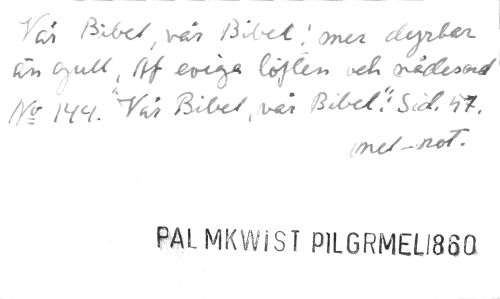 Vår Bibel, vår Bibel! mer dyrbar
än gull, Af eviga löften och nådesord
No 144. "Vår Bibel, vår Bibel". Sid. 47.
mel-not.
PALMKWIST PILGRMEL1860